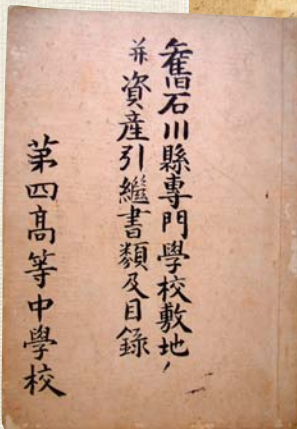 舊石川縣專門學校敷地ノ
并資産引繼書類及目録
第四高等中學校